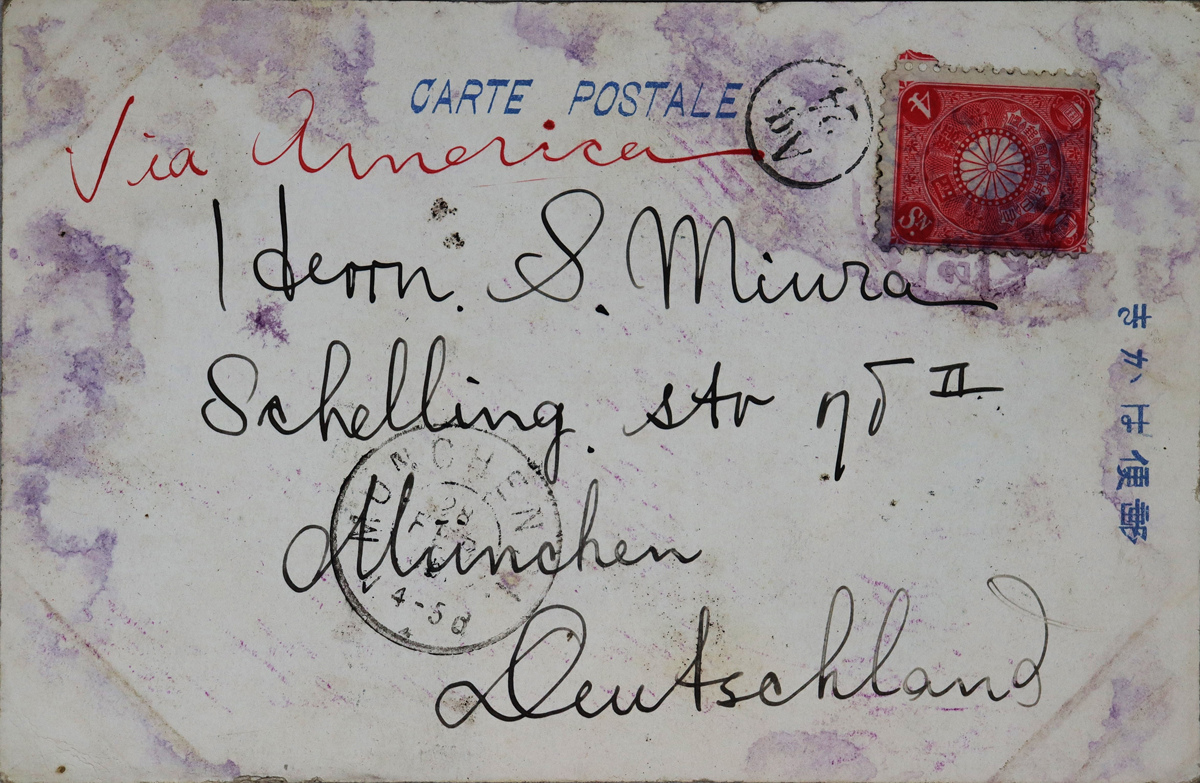 CARTE POSTALE
Via America
Herrn. S. Miura
Schelling. str 75 II
München
Deutschland
MÜNCHEN
4-5
4 SN.
郵便はかき